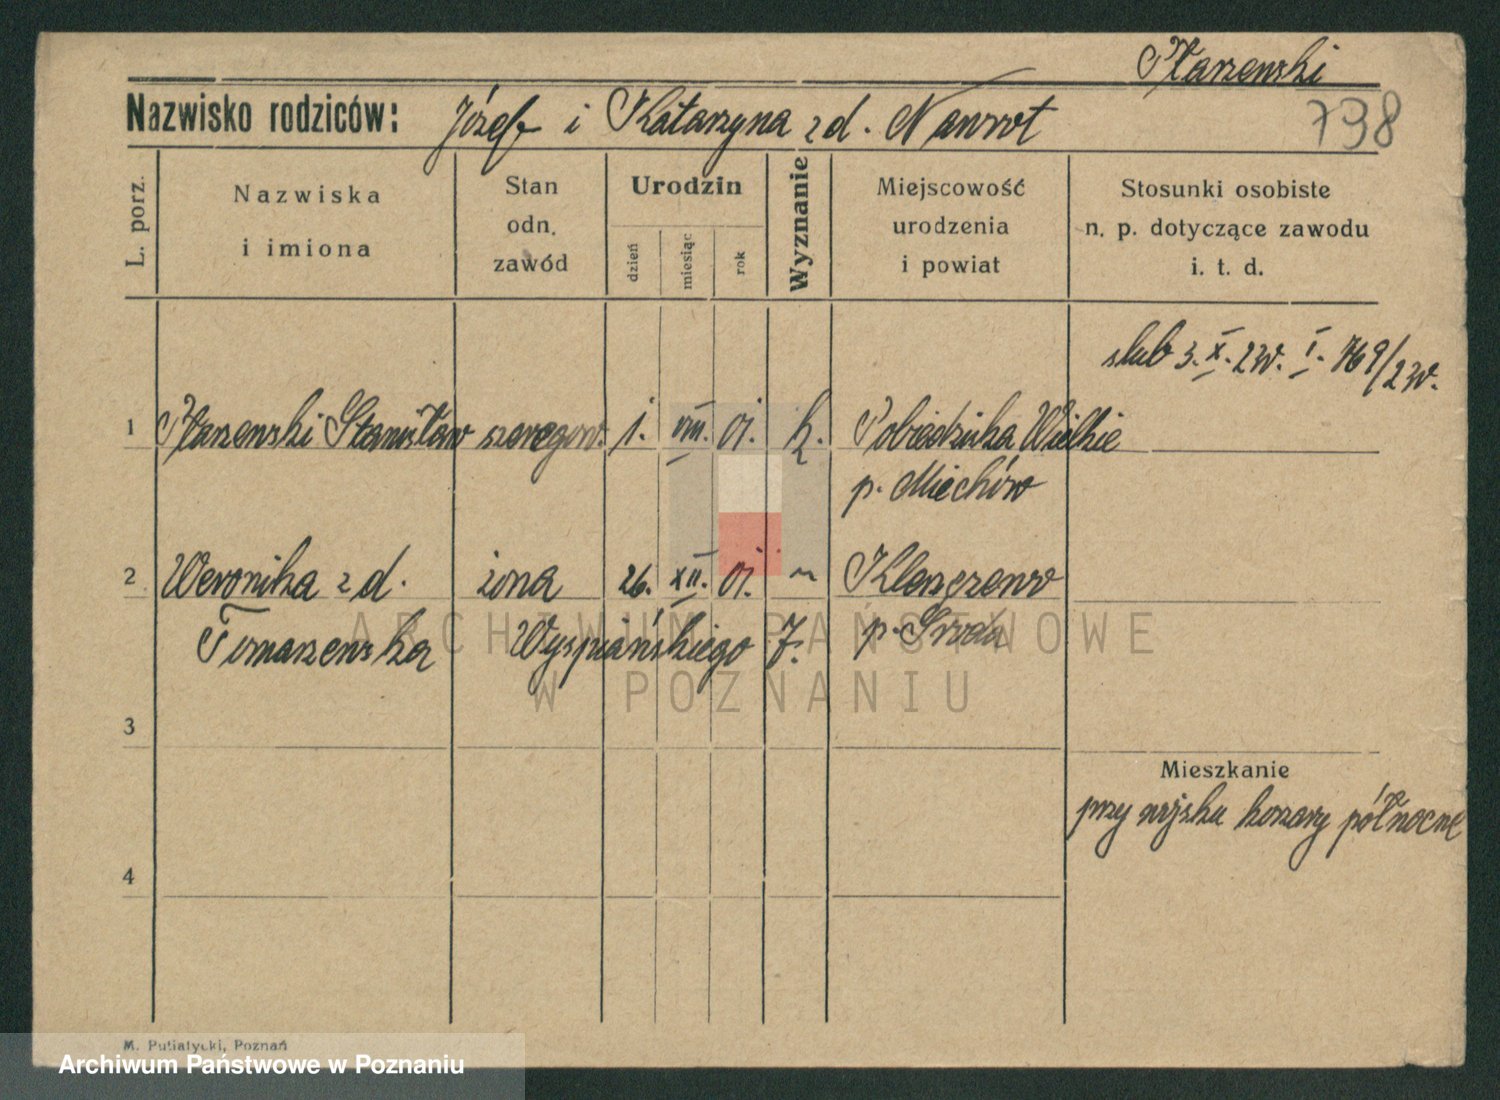 Ptaszewski
Nazwisko rodziców: Józef i Katarzyna z d. Nawrot
798
L. porz.
Nazwiska
i imiona
Stan
odn.
zawód
Urodzin
dzień
miesiąc
rok
Wyznanie
Miejscowość
urodzenia
i powiat
Stosunki osobiste
n. p. dotyczące zawodu
i. t. d.
ślub 3. X. 23r. I. 769/23r.
1 Ptaszewski Stanisław szeregow. 1. VIII. 01. k. Pobiednika Wielkie
p. Miechów
2 Weronika z d. żona 26. XII. 01. ~ Kleszczewo
Tomaszewska Wyspiańskiego 7. p. Środa
ARCHIWUM PAŃSTWOWE
W POZNANIU
3
Mieszkanie
przy wojsku koszary północne
4
M. Putiatycki, Poznań
Archiwum Państwowe w Poznaniu